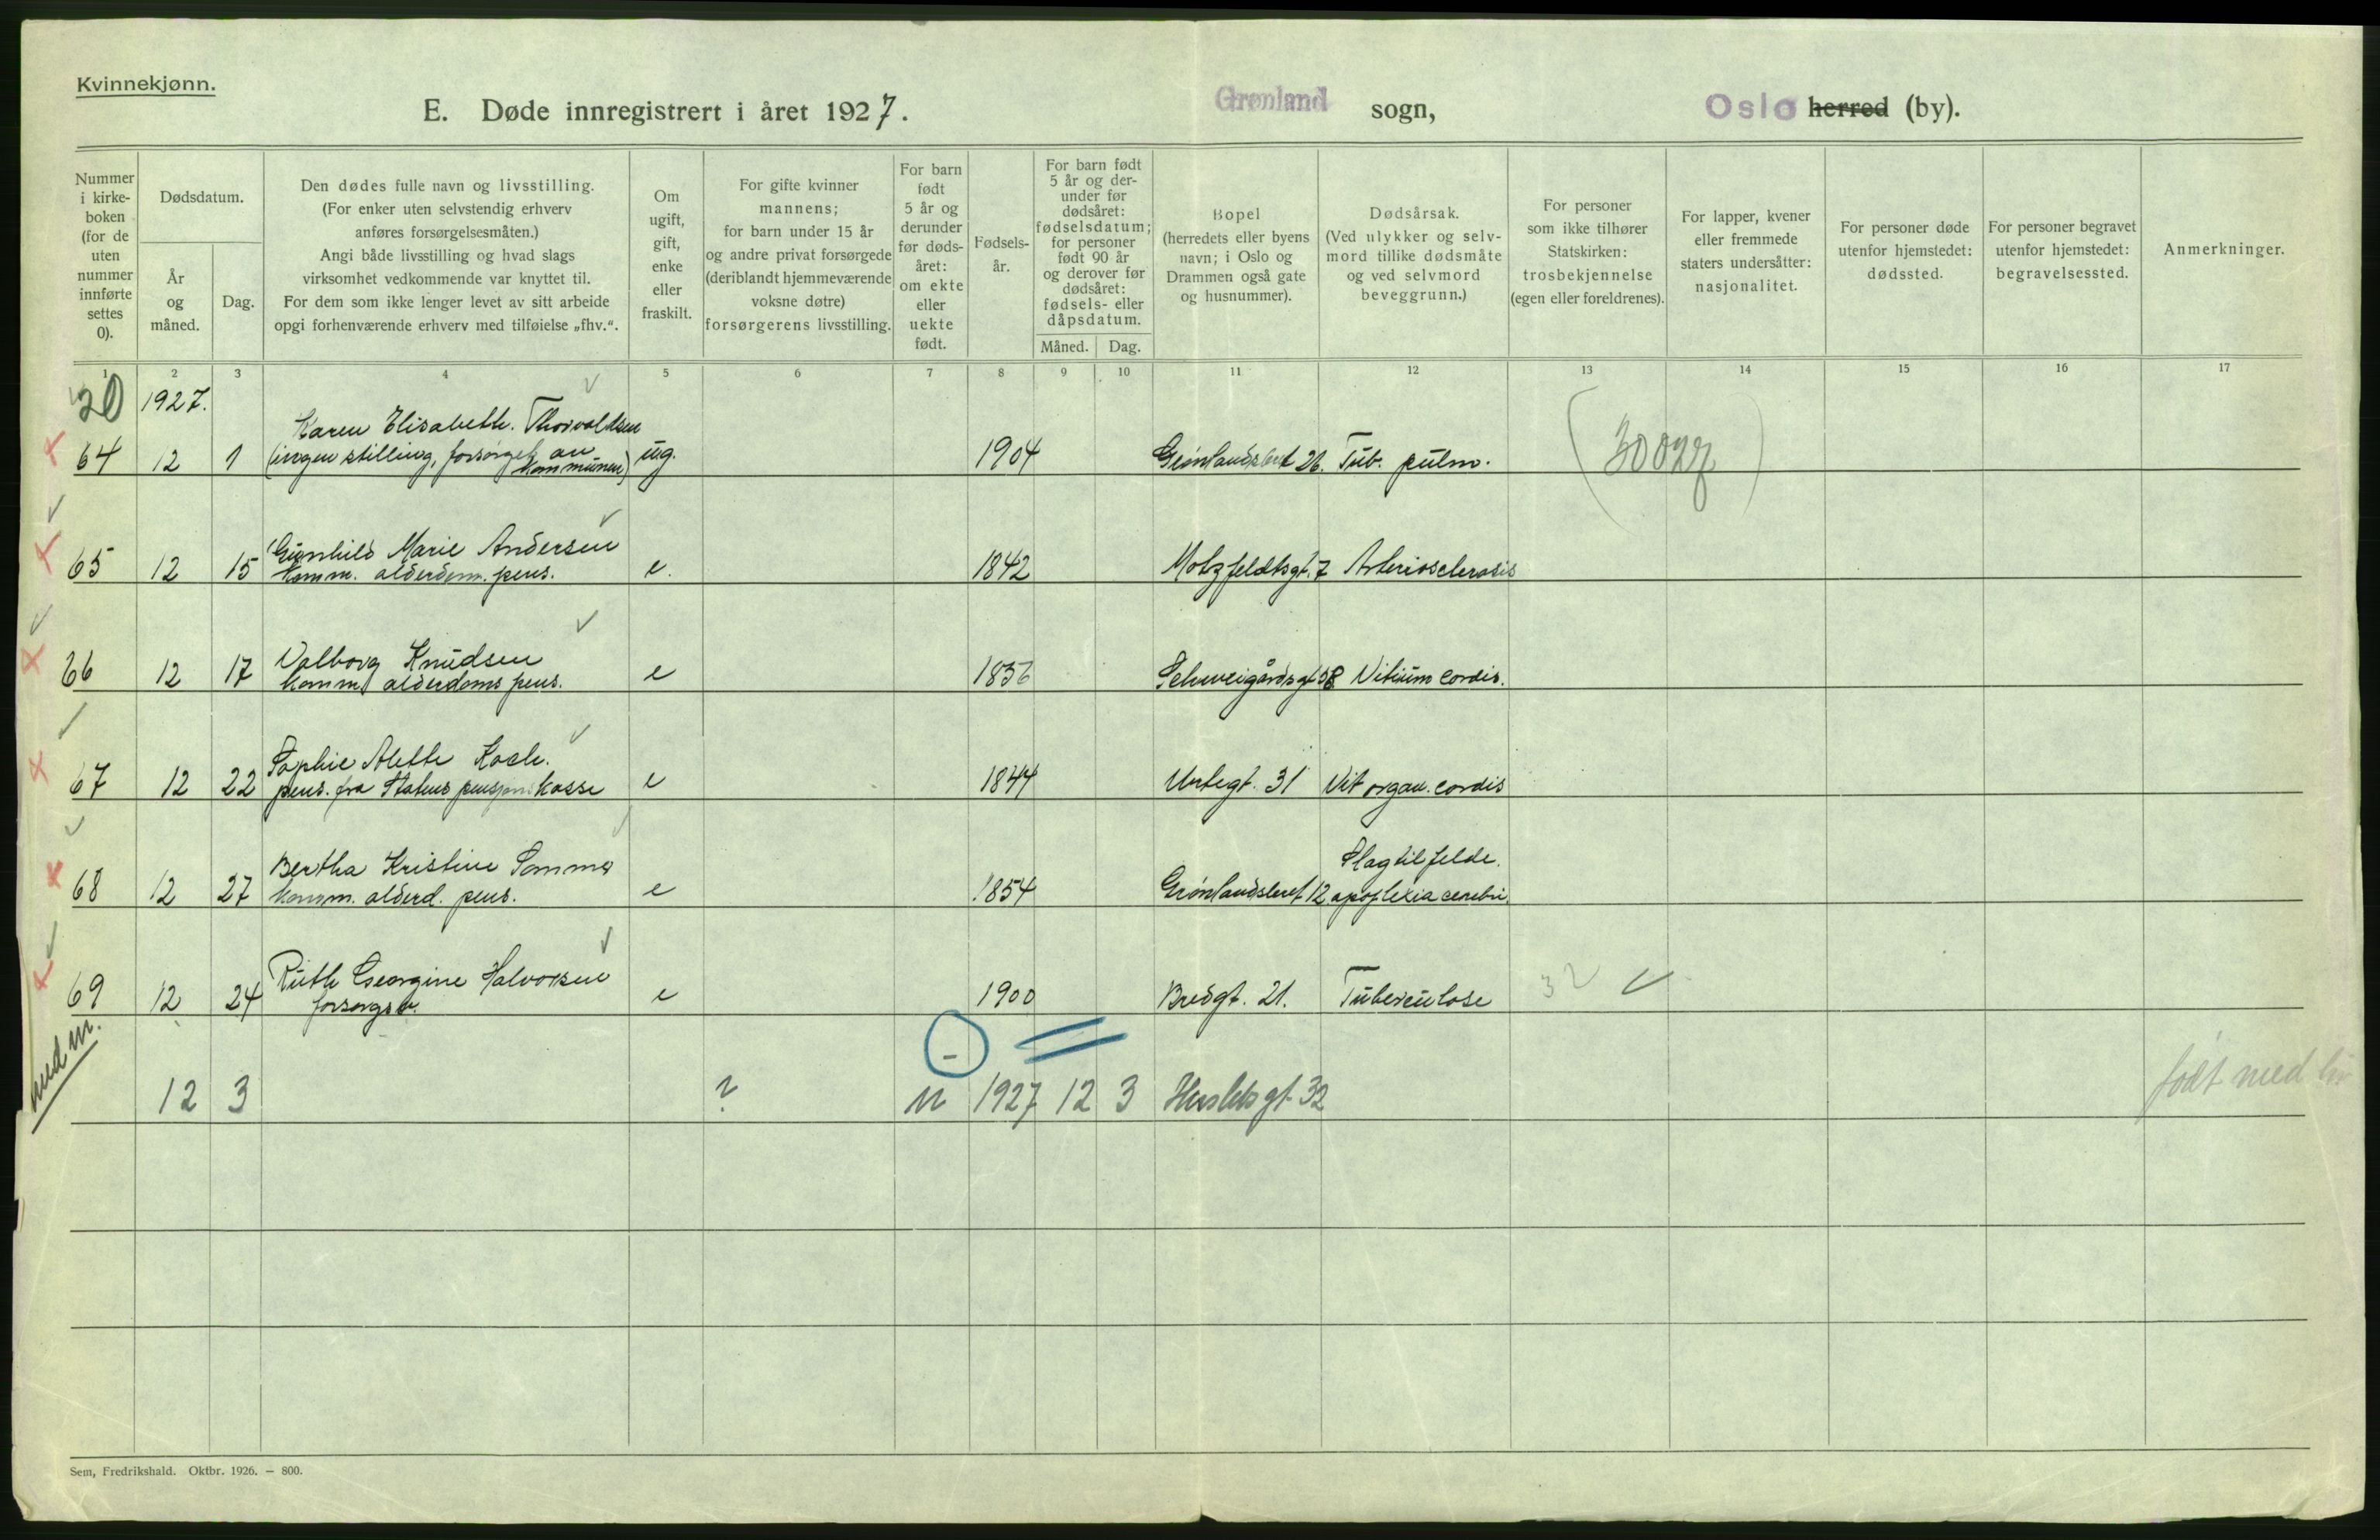 Kvinnekjønn.
E. Døde innregistrert i året 1927.
Grønland sogn,
Oslo herred (by).
Nummer i kirke-boken (for de uten nummer innførte settes 0).
Dødsdatum.
År og måned.
Dag.
Den dødes fulle navn og livsstilling.
(For enker uten selvstendig erhverv
anføres forsørgelsesmåten.)
Angi både livsstilling og hvad slags
virksomhet vedkommende var knyttet til.
For dem som ikke lenger levet av sitt arbeide
opgi forhenværende erhverv med tilføielse „fhv.".
Om ugift, gift, enke eller fraskilt.
For gifte kvinner
mannens;
for barn under 15 år
og andre privat forsørgede
(deriblandt hjemmeværende
voksne døtre)
forsørgerens livsstilling.
For barn født 5 år og derunder før døds-året: om ekte eller uekte født.
Fødsels-år.
For barn født 5 år og der-under før dødsåret: fødselsdatum; for personer født 90 år og derover før dødsåret: fødsels- eller dåpsdatum.
Måned.
Dag.
Bopel
(herredets eller byens
navn; i Oslo og
Drammen også gate
og husnummer).
Dødsårsak.
(Ved ulykker og selv-
mord tillike dødsmåte
og ved selvmord
beveggrunn.)
For personer
som ikke tilhører
Statskirken:
trosbekjennelse
(egen eller foreldrenes).
For lapper, kvener
eller fremmede
staters undersåtter:
nasjonalitet.
For personer døde
utenfor hjemstedet:
dødssted.
For personer begravet
utenfor hjemstedet:
begravelsessted.
Anmerkninger.
1 2 3 4 5 6 7 8 9 10 11 12 13 14 15 16 17
20 1927.
Karen Elisabeth Thorvaldsen
64 12 1 (ingen stilling, forsørget av kommunen) ug. 1904 Grønlandsleret 26. Tub. pulm.
Gunhild Marie Andersen
65 12 15 komm. alderdom. pens. e. 1842 Motzfeldtsgt. 7 Arteriosclerosis
Valborg Knudsen
66 12 17 komm. alderdoms pens. e 1836 Schweigårdsgt 58 Vitium cordis.
Sophie Alette Koch.
67 12 22 pens. fra Statens pensjonskasse e 1844 Urtegt. 31 Vit organ. cordis
Bertha Kristine Sommer Slagtilfelde.
68 12 27 komm. alderd. pens. e 1854 Grønlandsleret 12 apoplexia cerebri.
Ruth Georgine Halvorsen
69 12 24 forsorgsv. e 1900 Bredgt. 21. Tuberculose 32
12 3 ? u 1927 12 3 Herslebsgt 32 født med liv
Sem, Fredrikshald. Oktbr. 1926. — 800.